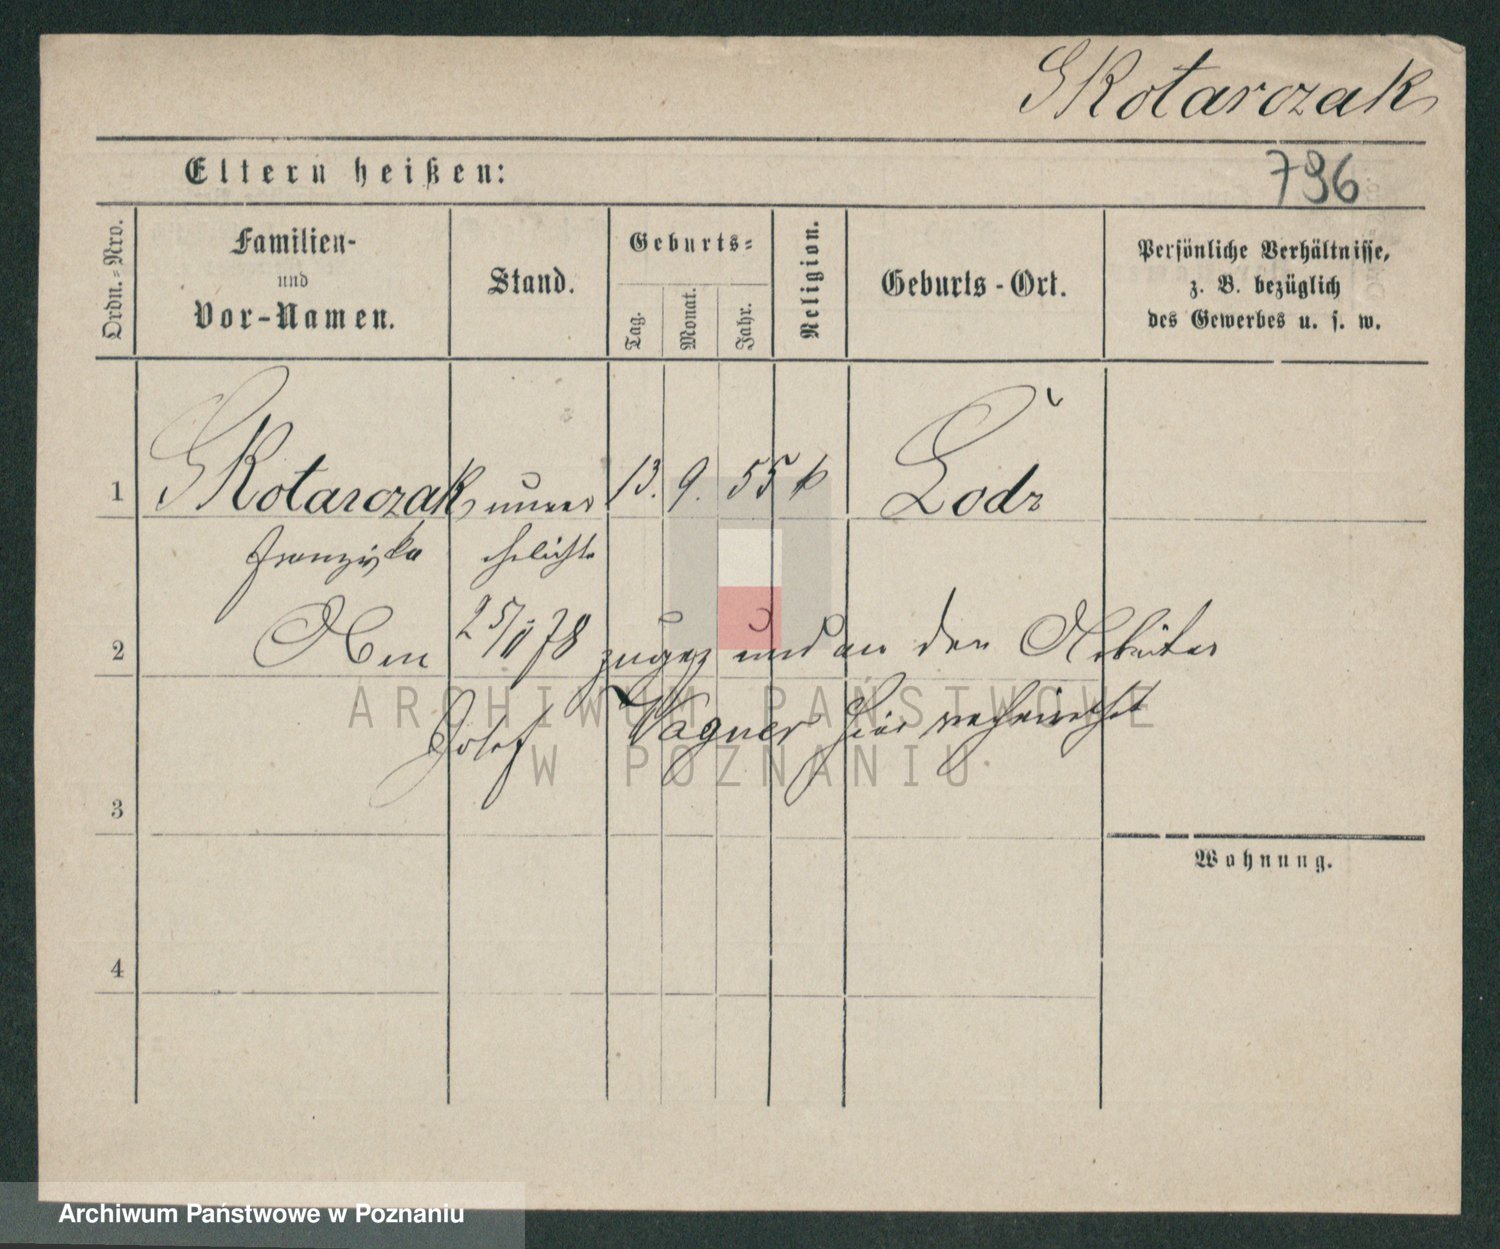 Skotarczak
Eltern heißen:
796
Ordn.=Nro.
Familien-
und
Vor-Namen.
Stand.
Geburts=
Tag.
Monat.
Jahr.
Religion.
Geburts-Ort.
Persönliche Verhältnisse,
z. B. bezüglich
des Gewerbes u. s. w.
1 Skotarczak unver 13. 9. 55 k Lodz
Franziska ehelicht
2 Am 25/11 78 zugez und an den Arbeiter
Josef Wagner hier verheirathet
3
Wohnung.
4
ARCHIWUM PAŃSTWOWE
W POZNANIU
Archiwum Państwowe w Poznaniu